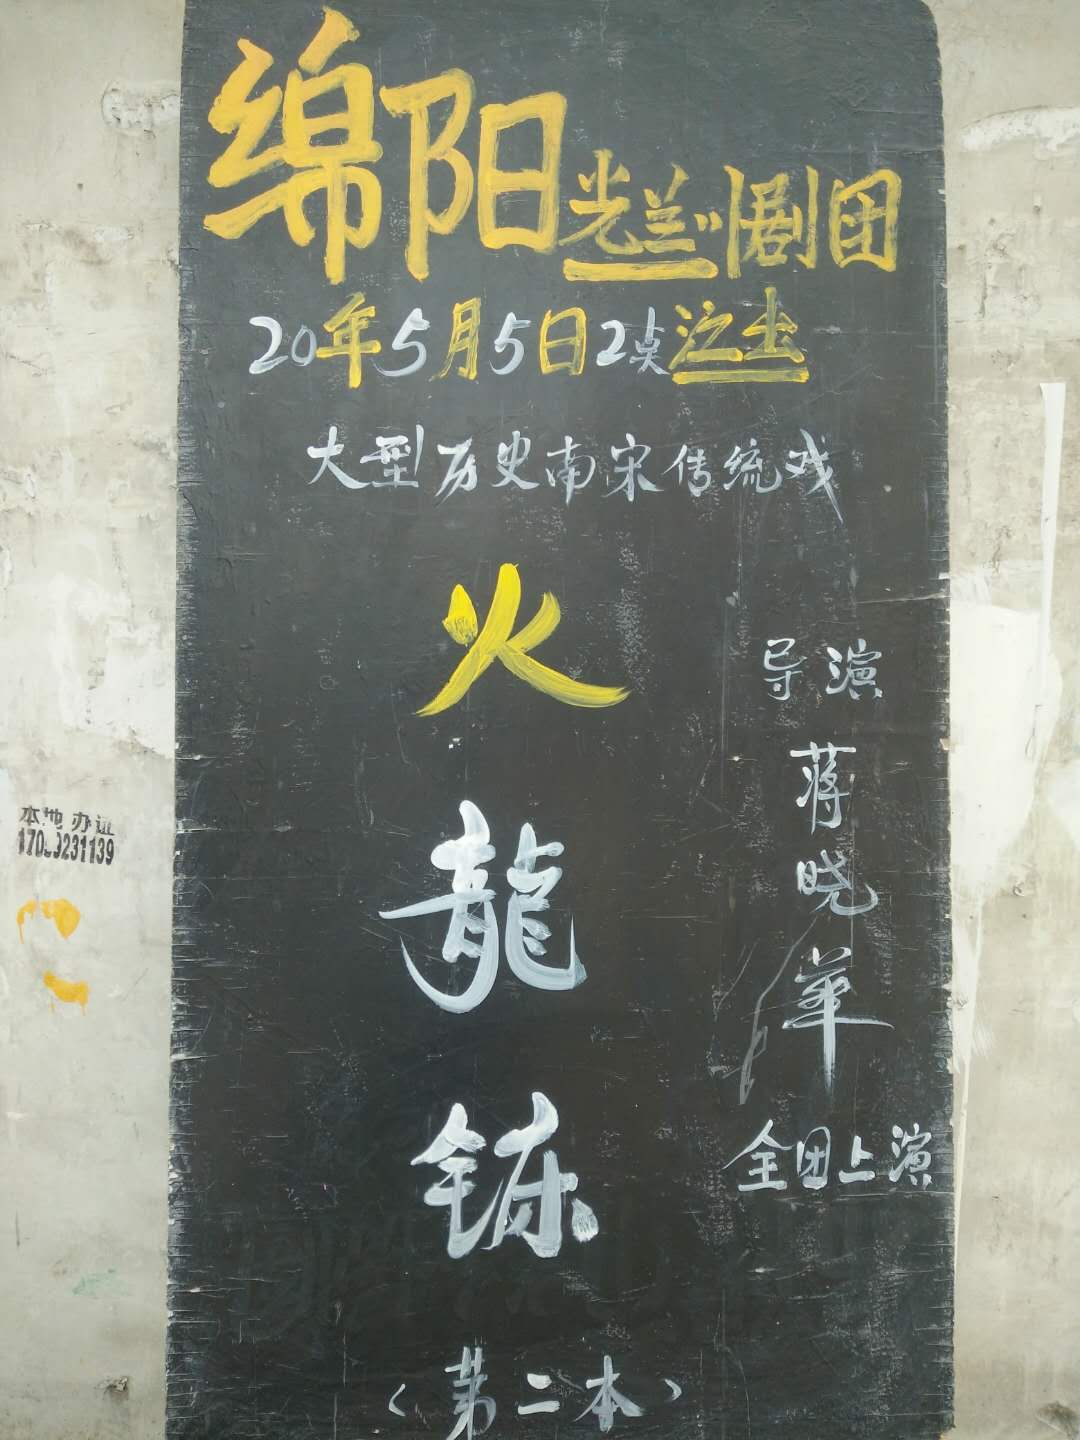 绵阳光兰川剧团
20年5月5日2点演出
大型历史南宋传统戏
火
龍
(第二本)
导演
蒋
晓
全团上演
本地办证